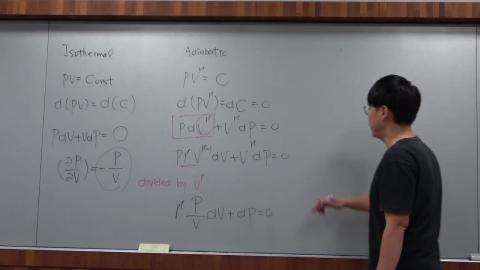 Isothermal
PV = Const
d(PV) = d(C)
PdV + VdP = 0
(∂P/∂V) = - P/V
Adiabatic
PV^r = C
d(PV^r) = dC = 0
PdV^r + V^r dP = 0
P r V^(r-1) dV + V^r dP = 0
divided by V^r
r P/V dV + dP = 0